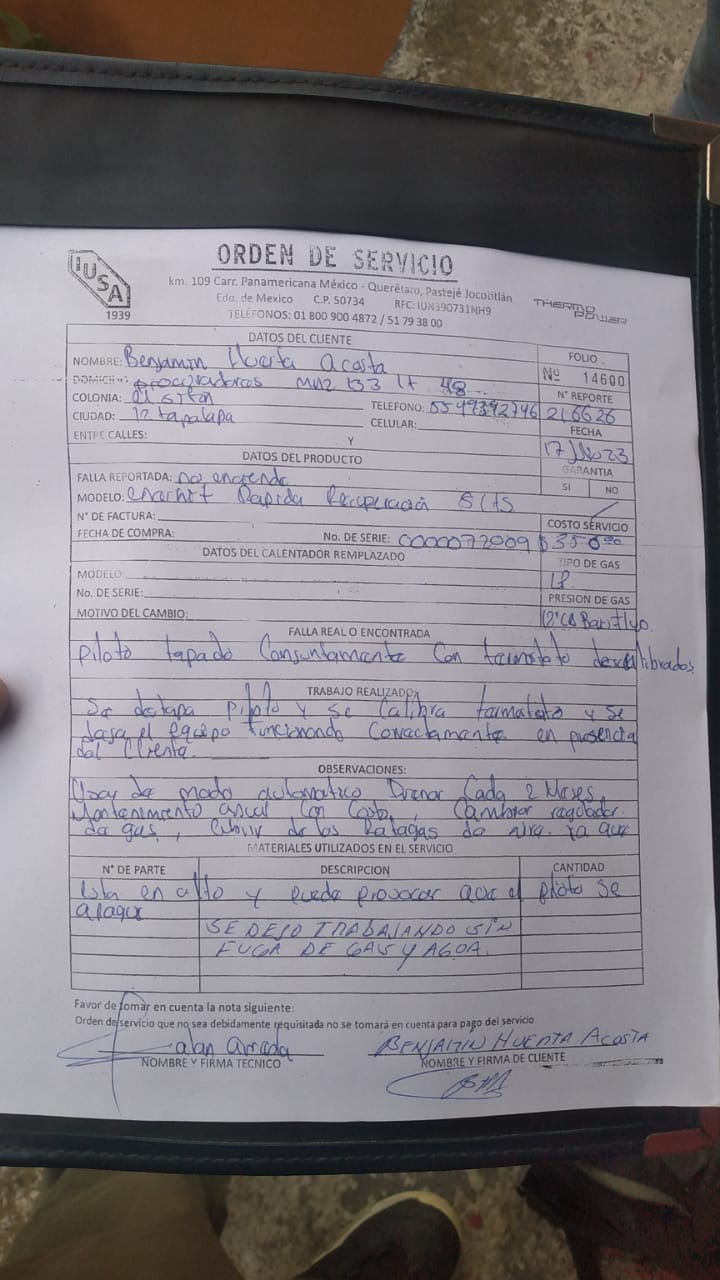 IUSA
1939
ORDEN DE SERVICIO
km. 109 Carr. Panamericana México - Querétaro, Pastejé Jocotitlán
Edo. de Mexico C.P. 50734 RFC: IUN390731NH9
TELÉFONOS: 01 800 900 4872 / 51 79 38 00
THERMO POWER
DATOS DEL CLIENTE
FOLIO
NOMBRE: Benjamin Huerta Acosta
Nº 14600
DOMICILIO: procuradores mnz 133 lt 48
N° REPORTE
COLONIA: el sifon
TELEFONO: 5549392746 216626
CIUDAD: Iztapalapa
CELULAR:
FECHA
ENTRE CALLES: Y
17 23
DATOS DEL PRODUCTO
GARANTIA
FALLA REPORTADA: no enciende
SI NO
MODELO: Rapida Recuperación 5 lts
N° DE FACTURA:
COSTO SERVICIO
FECHA DE COMPRA: No. DE SERIE: 0000072009 $350.00
DATOS DEL CALENTADOR REMPLAZADO
TIPO DE GAS
MODELO:
LP.
No. DE SERIE:
PRESION DE GAS
MOTIVO DEL CAMBIO:
FALLA REAL O ENCONTRADA
piloto tapado Conjuntamente Con termstato descalibrados
TRABAJO REALIZADO
Se destapa piloto y se Calibra termostato y se
dejsa el equipo funcionando Correctamente en presencia
del Cliente.
OBSERVACIONES:
Usar de modo automatico Drenar Cada 2 Meses,
Mantenimiento anual Con Costo, Cambiar regulador
de gas, Cubrir de las Rafagas de aire. ya que
MATERIALES UTILIZADOS EN EL SERVICIO
N° DE PARTE DESCRIPCION CANTIDAD
esta en alto y puede provocar que el piloto se
apague
SE DEJO TRABAJANDO SIN
FUGA DE GAS Y AGUA.
Favor de tomar en cuenta la nota siguiente:
Orden de servicio que no sea debidamente requisitada no se tomará en cuenta para pago del servicio
alan arreda BENJAMIN HUERTA ACOSTA
NOMBRE Y FIRMA TECNICO NOMBRE Y FIRMA DE CLIENTE